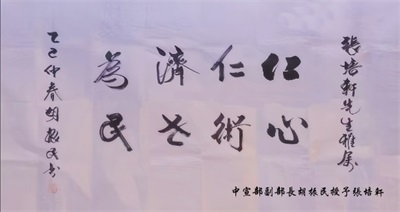 張培軒先生雅属
仁心
仁術
濟世
為民
乙巳仲春胡振民书
中宣部副部長胡振民授予張培軒